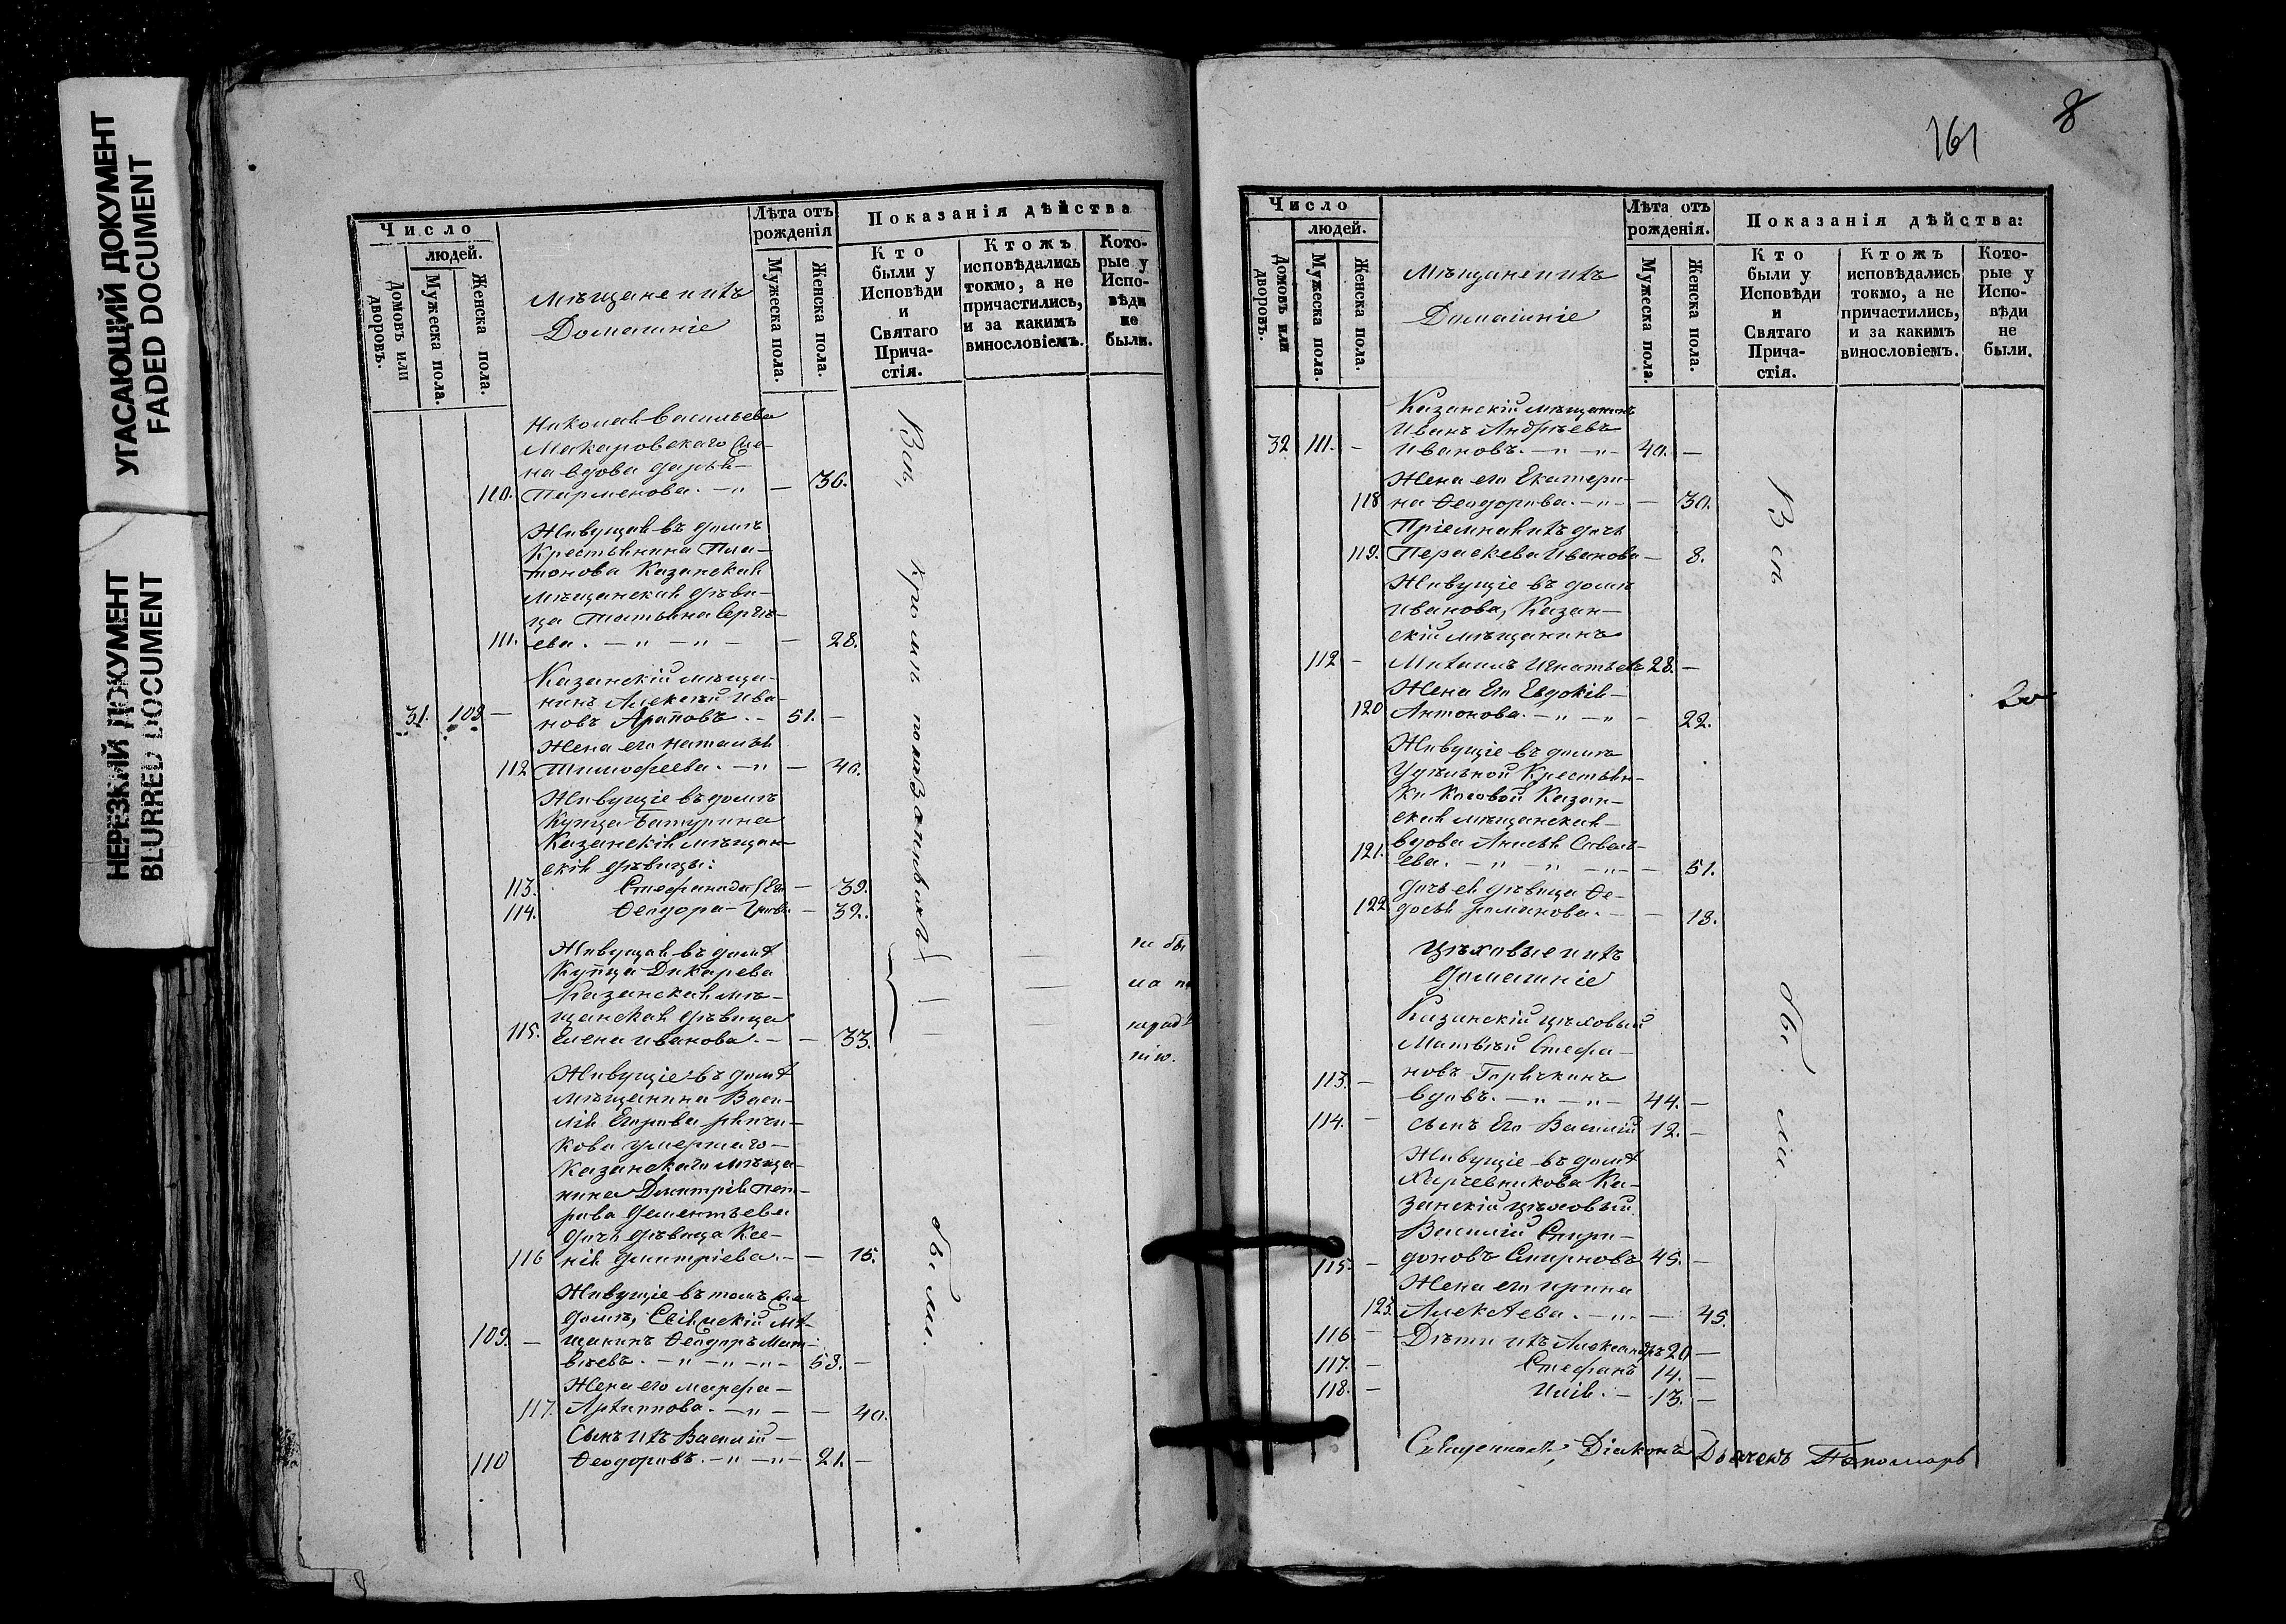 УГАСАЮЩИЙ ДОКУМЕНТ
FADED DOCUMENT
НЕРЕЗКИЙ ДОКУМЕНТ
BLURRED DOCUMENT
Число
людей.
Домовъ или дворовъ.
Мужеска пола.
Женска пола.
Мѣщане и ихъ
Домашніе
Лѣта отъ рожденія
Мужеска пола.
Женска пола.
Показанія дѣйства
Кто были у Исповѣди и Святаго Прича-стія.
Ктожъ исповѣдались токмо, а не причастились, и за какимъ винословіемъ.
Кото-рые у Испо-вѣди не были.
Николая Васильева
Макаровскаго Же-
на вдова Дарья
110. Парменова. — " — 36.
Живущая въ домѣ
Крестьянина Пла-
тонова Казанская
мѣщанская дѣви-
ца Татьяна Сергѣ-
111. ева. — " — " — — 28.
Казанскій мѣща-
нинъ Алексѣй Ива-
31. 108 — новъ Араповъ. — 51. —
Жена его Наталья
112 Тимофеева. — " — 40.
Живущіе въ домѣ
Купца Батурина
Казанскія мѣщан-
скія дѣвицы:
113. Стефанида — 39.
114. Феодора — 32.
Живущая въ домѣ
Купца Дикарева
Казанская мѣ-
щанская дѣвица
115. Елена Иванова. — — 33.
Живущіе въ домѣ
мѣщанина Васи-
лія Егорова
умершаго
Казанскаго мѣща-
нина Димитрія Пет-
рова Дементьева
дочь дѣвица Ксе-
116 нія Димитріева. — — 15.
Живущіе въ томъ же
домѣ, Свіяжскій мѣ-
109. — щанинъ Феодоръ Мат-
вѣевъ. — " — " — " — 58. —
Жена его Марфа —
117. Архиппова. — " — — 40.
Сынъ ихъ Василій —
110 Феодоровъ. — " — " — 21. —
Всѣ, кромѣ показанныхъ
были.
не бы
ла по
нерадѣ
нію.
161
8
Число
людей.
Домовъ или дворовъ.
Мужеска пола.
Женска пола.
Мѣщане и ихъ
Домашніе
Лѣта отъ рожденія.
Мужеска пола.
Женска пола.
Показанія дѣйства:
Кто были у Исповѣди и Святаго Прича-стія.
Ктожъ исповѣдались токмо, а не причастились, и за какимъ винословіемъ.
Кото-рые у Испо-вѣди не были.
Казанскій мѣщанинъ
Иванъ Андрѣевъ
32 111. — Ивановъ. — " — " — 40. —
Жена его Екатери-
118 на Феодорова. — " — — 30.
Пріемная ихъ дочь
119. Параскева Иванова — 8.
Живущіе въ домѣ
Иванова, Казан-
скій мѣщанинъ
112 — Михаилъ Игнатьевъ 28. —
Жена Его Евдокія —
120 Антонова. — " — " — 22.
Живущіе въ домѣ
Удѣльной Крестьян-
ки Косовой Казан-
ская мѣщанская —
вдова Анисья Савель-
121. ева. — " — " — " — — 51.
Дочь ея дѣвица Фе-
122 досья Романова. — — 18.
Цѣховые и ихъ
домашніе
Казанскій цѣховый
Матвѣй Стефа-
113. — новъ Горячкинъ
вдовъ. — " — " — 44. —
114. — Сынъ Его Василій 12. —
Живущіе въ домѣ
Харчевникова Ка-
занскій цѣховый
Василій Спири-
115 — доновъ Смирновъ 45. —
Жена его Ирина
123. Алексѣева. — " — — 45.
116 — Дѣти ихъ Александръ 20 —
117. — Стефанъ 14. —
118. — Илія. — 13. —
Всѣ
были.
Священникъ, Діаконъ Дьячекъ Пономарь